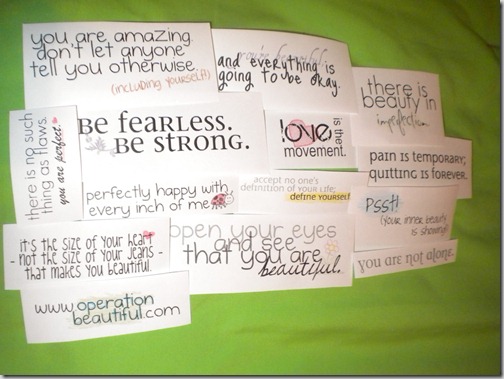 you are amazing.
don't let anyone
tell you otherwise.
(including yourself)
you're beautiful
and everything is
going to be okay.
there is
beauty in
imperfection
there is no such
thing as flaws.
you are perfect.
Be fearless.
Be strong.
love is the
movement.
pain is temporary;
quitting is forever.
perfectly happy with
every inch of me.
accept no one's
definition of your life;
define yourself
Psst!
(your inner beauty
is showing!)
it's the size of your heart
- not the size of your jeans -
that makes you beautiful.
open your eyes
and see
that you are
beautiful.
you are not alone.
www.operation
beautiful.com